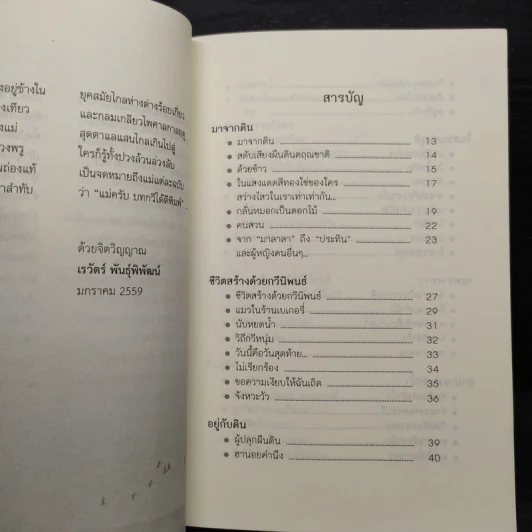 งอยู่ข้างใน
งเทียว
งแม่
วงพรู
นถ่องแท้
าสำทับ
ยุคสมัยไกลห่างต่างร้อยเกี่ยว
และกลมเกลียวไพศาลกาลฤดู
สุดตาแลแสนไกลเกินไปสู่
ใครก็รู้ทั้งปวงล้วนล่วงลับ
เป็นจดหมายถึงแม่แต่ละฉบับ
ว่า “แม่ครับ บทกวีได้ตีพิมพ์”
ด้วยจิตวิญญาณ
เรวัตร์ พันธุ์พิพัฒน์
มกราคม 2559
สารบัญ
มาจากดิน
• มาจากดิน 13
• สดับเสียงผืนดินดฤณชาติ 14
• ด้วยช้าว 15
• ในแสงแดดสีทองใช่ของใคร 17
สว่างไสวในเราเท่าเท่ากัน...
• กลั่นหมอกเป็นดอกไม้ 19
• คนสวน 22
• จาก “มาลาลา” ถึง “ประทิน” 23
และผู้หญิงคนอื่นๆ...
ชีวิตสร้างด้วยกวีนิพนธ์
• ชีวิตสร้างด้วยกวีนิพนธ์ 27
• แมวในร้านเบเกอรี่ 29
• นับหยดน้ำ 31
• วิถีกวีหนุ่ม 32
• วันนี้คือวันสุดท้าย... 33
• ไม่เรียกร้อง 34
• ขอความเงียบให้ฉันเถิด 35
• จังหวะวัว 36
อยู่กับดิน
• ผู้ปลุกผืนดิน 39
• ฮานอยคำนึง 40